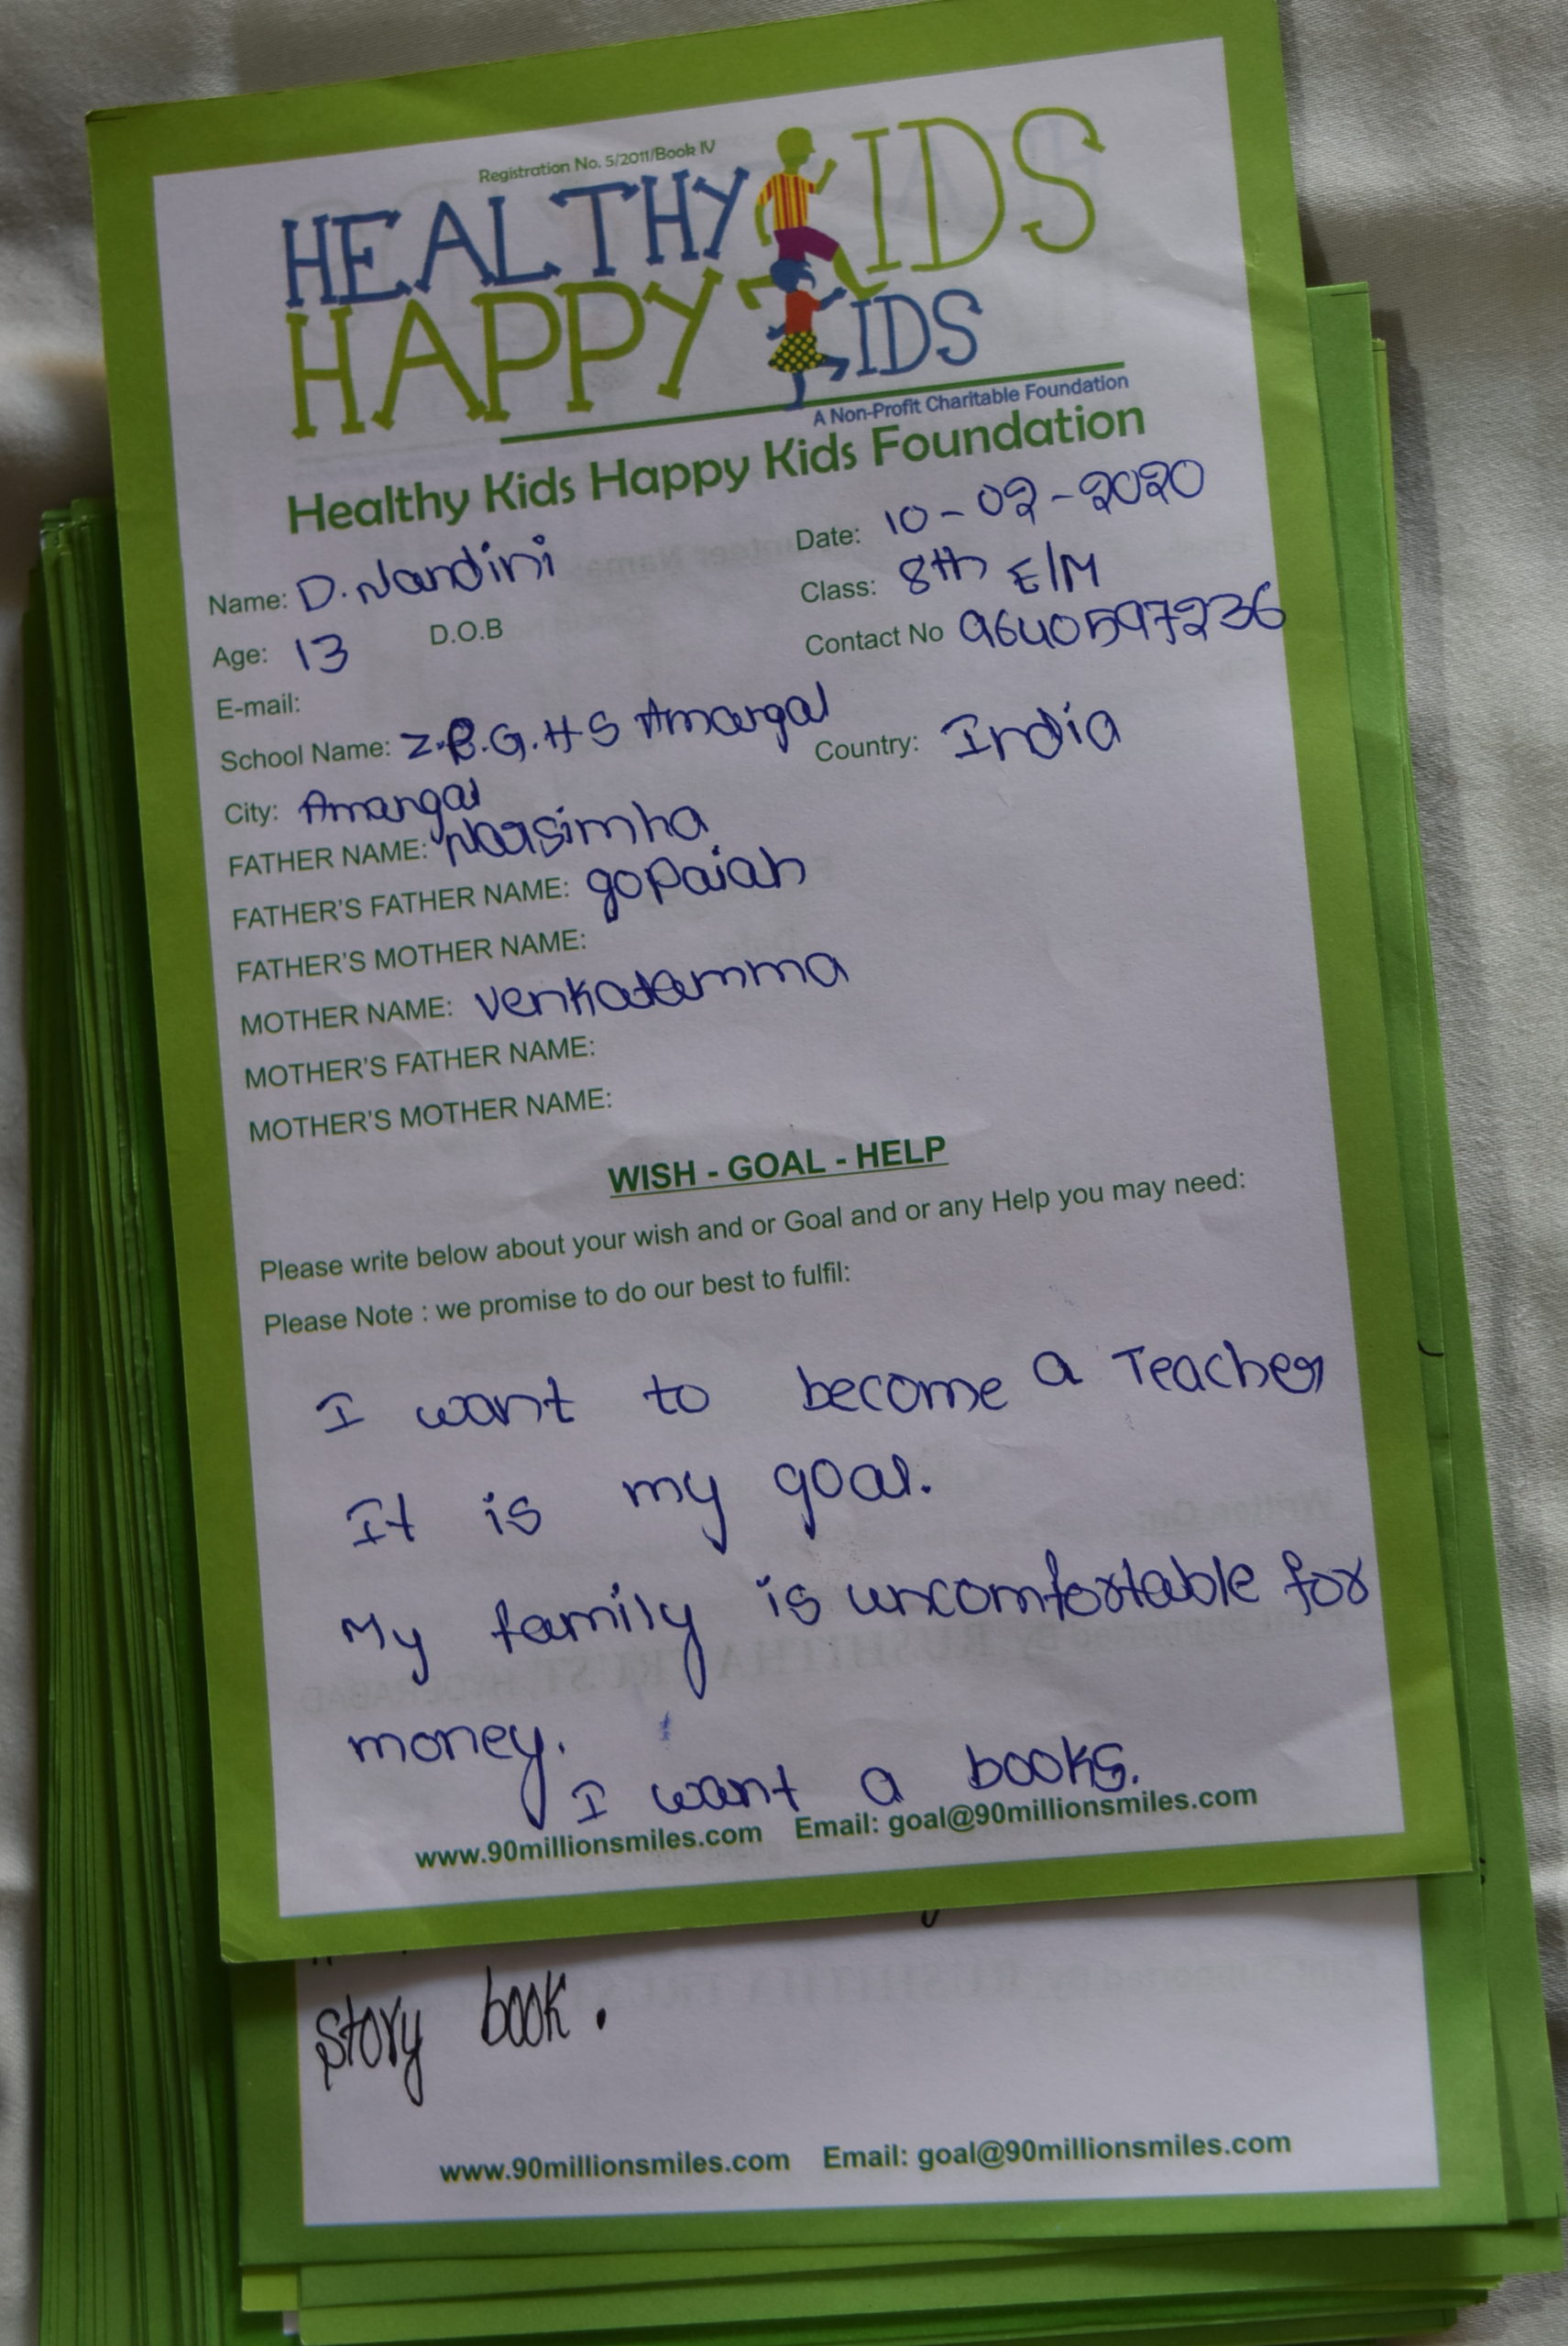 Registration No. 5/2011/Book IV
HEALTHY KIDS
HAPPY KIDS
A Non-Profit Charitable Foundation
Healthy Kids Happy Kids Foundation
Name: D. Nandini Date: 10-02-2020
Age: 13 D.O.B Class: 8th E/M
E-mail: Contact No 9640597236
School Name: Z.P.G.H.S Amangal
City: Amangal Country: India
FATHER NAME: Narsimha
FATHER'S FATHER NAME: gopaiah
FATHER'S MOTHER NAME:
MOTHER NAME: Venkatamma
MOTHER'S FATHER NAME:
MOTHER'S MOTHER NAME:
WISH - GOAL - HELP
Please write below about your wish and or Goal and or any Help you may need:
Please Note : we promise to do our best to fulfil:
I want to become a Teacher
It is my goal.
My family is uncomfortable for
money.
I want a books.
www.90millionsmiles.com Email: goal@90millionsmiles.com
story book.
www.90millionsmiles.com Email: goal@90millionsmiles.com